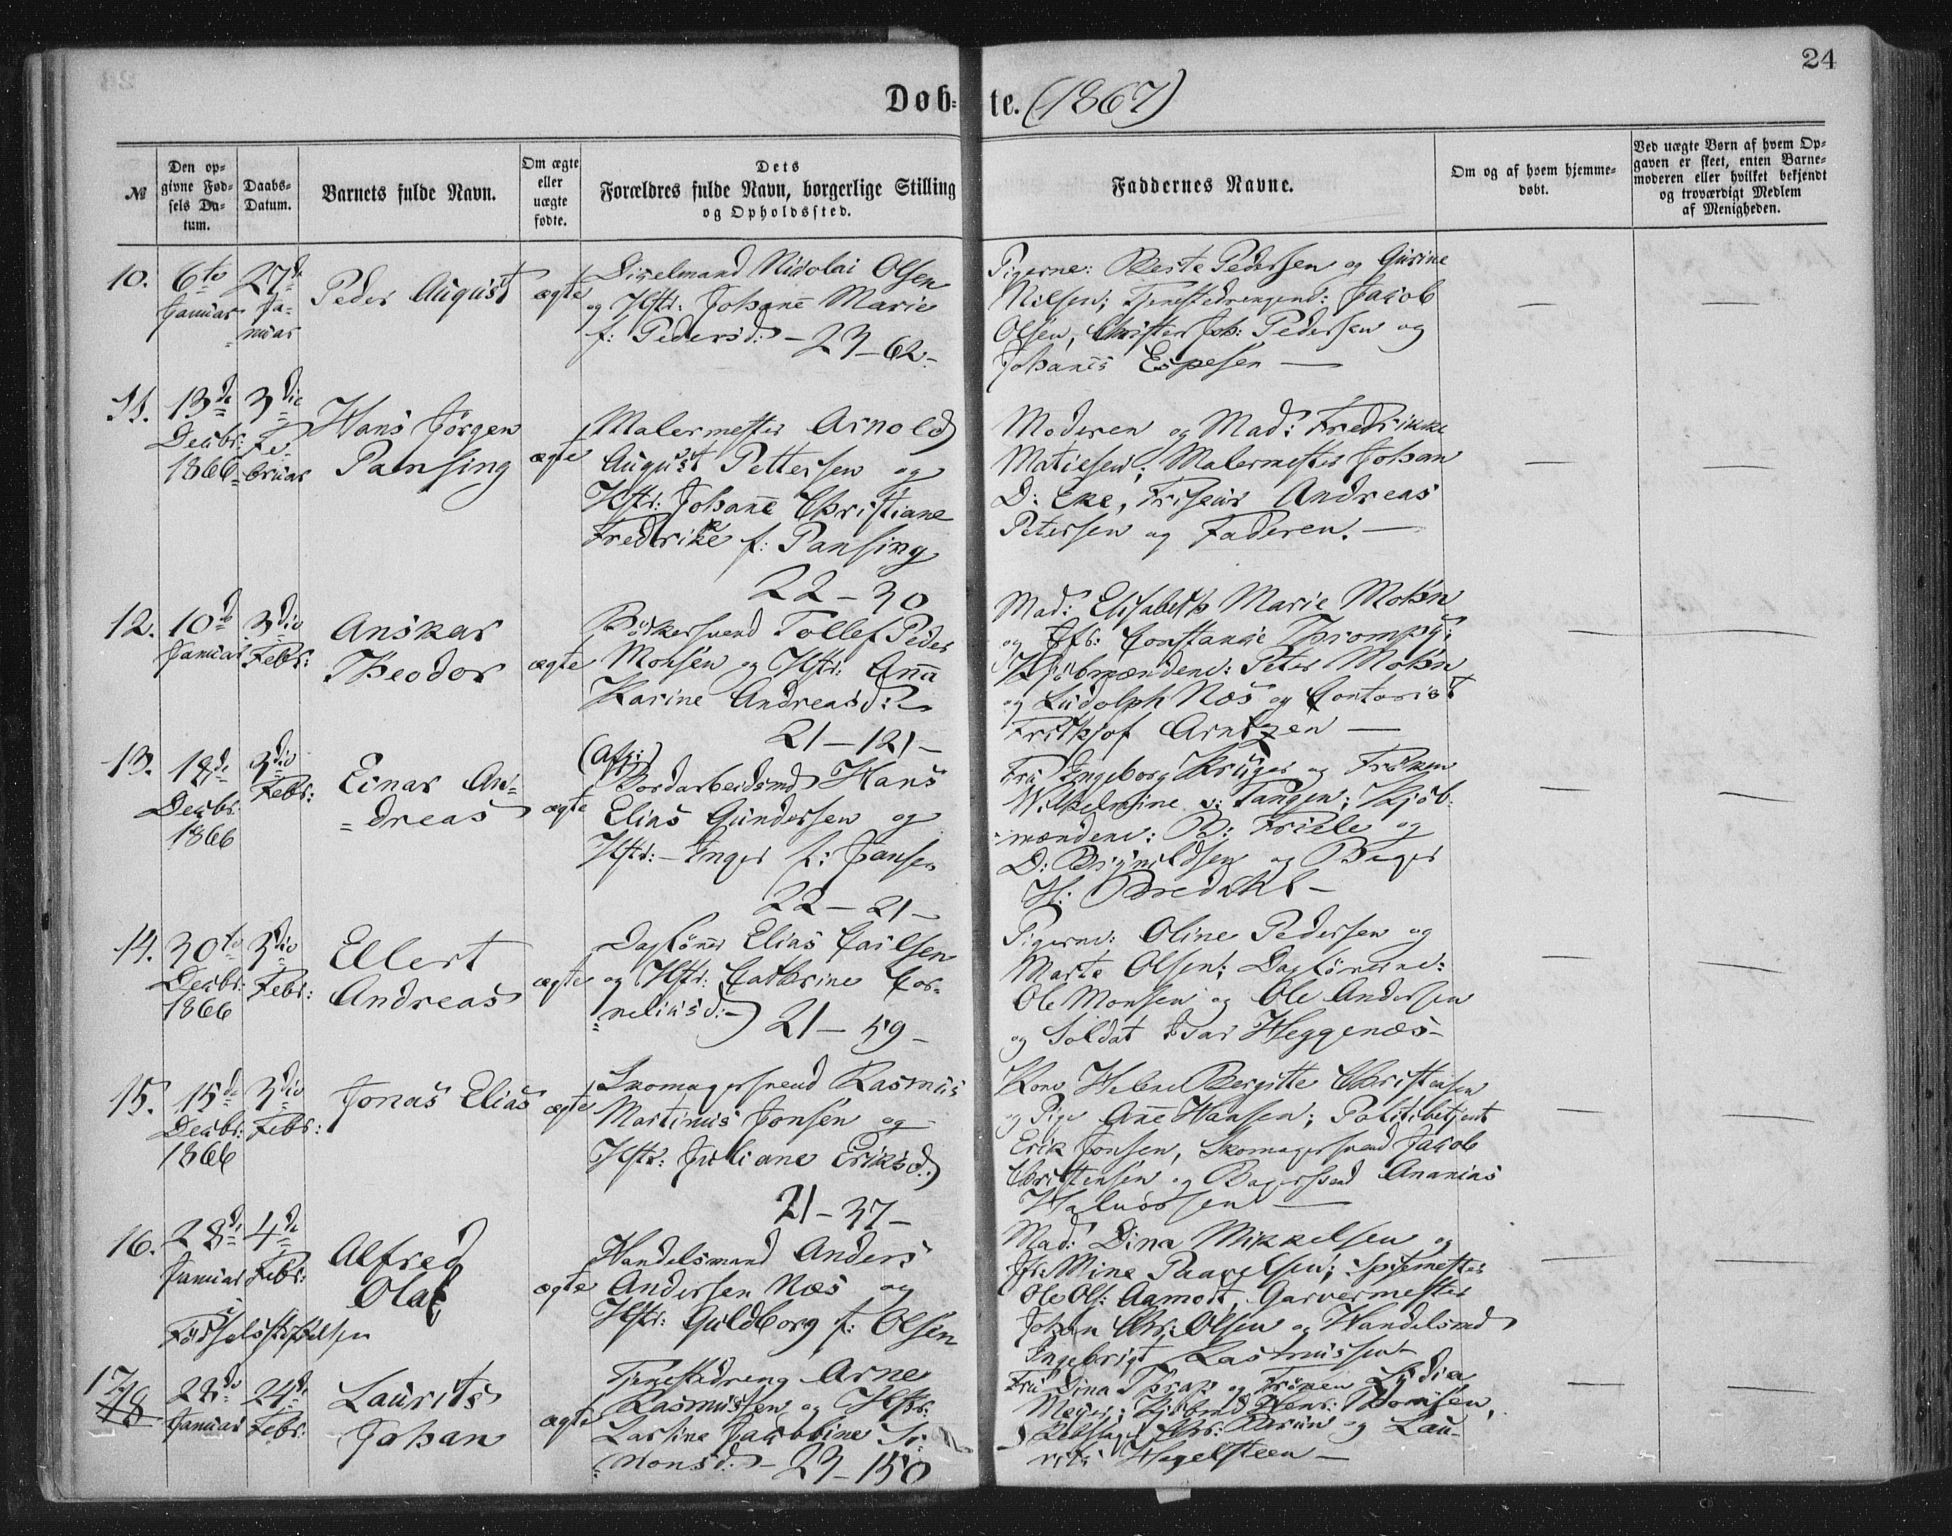 24
Døb-te. (1867)
№
Den opgivne Fødsels Datum.
Daabs-Datum.
Barnets fulde Navn.
Om ægte eller uægte fødte.
Dets Forældres fulde Navn, borgerlige Stilling og Opholdssted.
Faddernes Navne.
Om og af hvem hjemmedøbt.
Ved uægte Børn af hvem Opgaven er skeet, enten Barnemoderen eller hvilket bekjendt og troværdigt Medlem af Menigheden.
10.
6te Januar
27de Januar
Peder August
ægte
Nikolai Olsen
og Hstr: Johane Marie
f: Pedersd: - 23-62-
Pigerne: Berte Pedersen og Gurine
Nilsen; Tjenestedrengene: Jakob
Olsen, Joh: Pedersen og
Johanes Espesen —
11.
13de Decbr: 1866
3die Februar
Hans Jörgen
Pansing
ægte
Malermester Arnold
August Pettersen og
Hstr: Johane Christiane
Fredrike f: Pansing
22-30
Moderen og Mad: Fredrikke
Matiesen; Malermester Johan
D: Eke, Friseur Andreas
Petersen og Faderen. —
12.
10de Januar
3die Febr:
Anskar
Theodor
ægte
Bödkersvend Tollef Peder
Monsen og Hstr: Ana
Karine Andreasd:
21-121-
Mad: Elisabeth Marie Mohn
og Jfr: Constance
Kjöbmændene: Peter Mohn
og Ludolph Næs og Contorist
Frithjof Arntzen —
13.
18de Decbr. 1866
3die Febr:
Einar An-
dreas
ægte
Bordarbeidsmd Hans
Elias Gundersen og
Hstr: Inger f: Jansen
22-21-
Fru Ingeborg Krüger og Fröken
Wilhelmine v: Tangen; Kjöb-
mændene: B: Friele og
D: Brynildsen og Bager
H: Bredahl —
14.
30te Decbr: 1866
3die Febr:
Ellert
Andreas
ægte
Daglöner Elias Carlsen
og Hstr: Cathrine Cor-
neliusd: - 21-59-
Pigerne: Oline Pedersen og
Marta Olsen; Daglönerne:
Ole Monsen og Ole Andersen
og Soldat Ivar Heggenæs —
15.
15de Decbr: 1866
3die Febr:
Jonas Elias
ægte
Skomagersvend Rasmus
Martinus Jonsen og
Hstr: Juliane Eriksd:
21-37-
Kone Helene Bergitte Christensen
og Pige Ane Hansen; Politibetjent
Erik Jonsen, Skomagersvend Jakob
Christensen og Bagersvend Ananias
Halvorsen —
16.
28de Januar
4de Febr:
Födselsstiftelsen
Alfred
Olaf
ægte
Handelsmand Anders
Andersen Næs og
Hstr: Guldborg f: Olsen
Mad: Dina Mikkelsen og
Jfr: Mine Paavelsen; Spisemester
Ole Ols: Aamodt, Garvermester
Johan Chr: Olsen og Handelsmd
Ingebrigt Rasmussen
17.
18
22de Januar
24de Febr:
Laurits
Johan
ægte
Tjenestedreng Arne
Rasmussen og Hstr:
Lastine Jakobine Si-
monsd: - 23-150
Fru Dina Thrap og Fröken Lydia
Meyer; Kjöbmd Henr: Thomsen,
Chr: Bruun og Lau-
rits Hegelsteen —